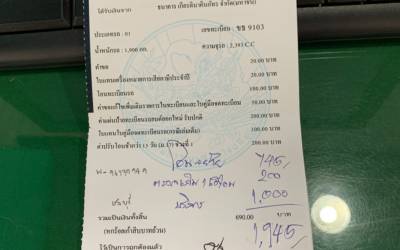 ได้รับเงินจาก ธนาคาร เกียรตินาคินภัทร จำกัด(มหาชน)
ประเภทรถ : 01 เลขทะเบียน : ขธ 9103
น้ำหนักรถ : 1,900 กก. ความจุรถ : 2,393 C.C
ค่าขอ 20.00 บาท
ใบแทนเครื่องหมายการเสียภาษีประจำปี 20.00 บาท
โอนทะเบียนรถ 100.00 บาท
ค่าขอแก้ไขเพิ่มเติมรายการในทะเบียนและในคู่มือจดทะเบียน 50.00 บาท
ค่าแผ่นป้ายทะเบียนรถยนต์ออกใหม่ รับปกติ 200.00 บาท
ใบแทนใบคู่มือจดทะเบียนรถ(กรณีเล่มเต็ม) 100.00 บาท
ค่าปรับโอนช้ากว่า 15 วัน 200.00 บาท
745/
200
1,000
บริการ
รวมเป็นเงินทั้งสิ้น 690.00 บาท
(หกร้อยเก้าสิบบาทถ้วน) 1,945/